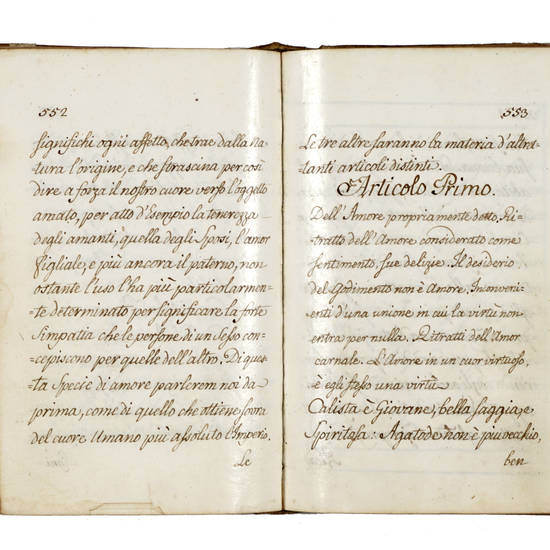 552
significhi ogni affetto, che trae dalla na
tura l'origine, e che strascina per così
dire a forza il nostro cuore verso l'oggetto
amato, per atto d'Esempio la tenerezza
degli amanti, quella degli Sposi, l'amor
figliale, e più ancora il paterno, non
ostante l'uso l'ha più particolarmen=
=te determinato per significare la forte
Simpatia che le persone di un Sesso con=
=cepiscono per quelle dell'altro. Di ques=
=ta Specie di amore parlerem noi da
prima, come di quello che ottiene sovra
del cuore Umano più assoluto l'Imperio.
Le
553
Le tre altre saranno la materia d'altret=
tanti articoli distinti.
Articolo Primo.
Dell'Amore propriamente detto, Ri=
tratto dell'Amore considerato come
sentimento, sue delizie. Il desiderio
del Godimento non è Amore. Inconveni=
enti d'una unione in cui la virtù non
entra per nulla. Ritratti dell'Amor
carnale. L'Amore in un cuor virtuoso,
è egli stesso una virtù
Calista è Giovane, bella saggia, e
Spiritosa: Agatode non è più vecchio,
ben